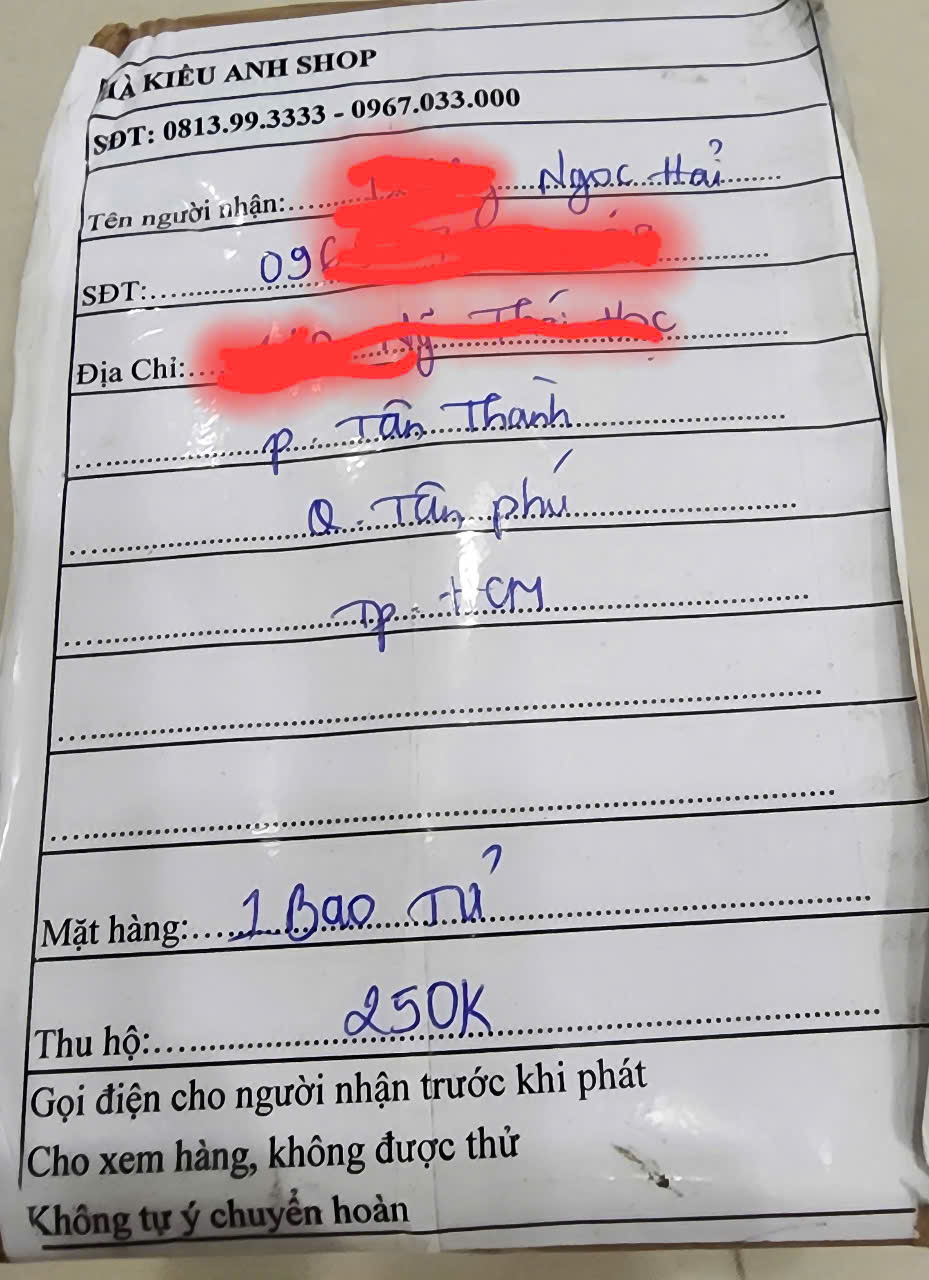 HÀ KIÊU ANH SHOP
SĐT: 0813.99.3333 - 0967.033.000
Tên người nhận: Ngọc Hải
SĐT: 096
Địa Chỉ:
P. Tân Thành
Q. Tân phú
Tp. HCM
Mặt hàng: 1 Bao Tử
Thu hộ: 250K
Gọi điện cho người nhận trước khi phát
Cho xem hàng, không được thử
Không tự ý chuyển hoàn